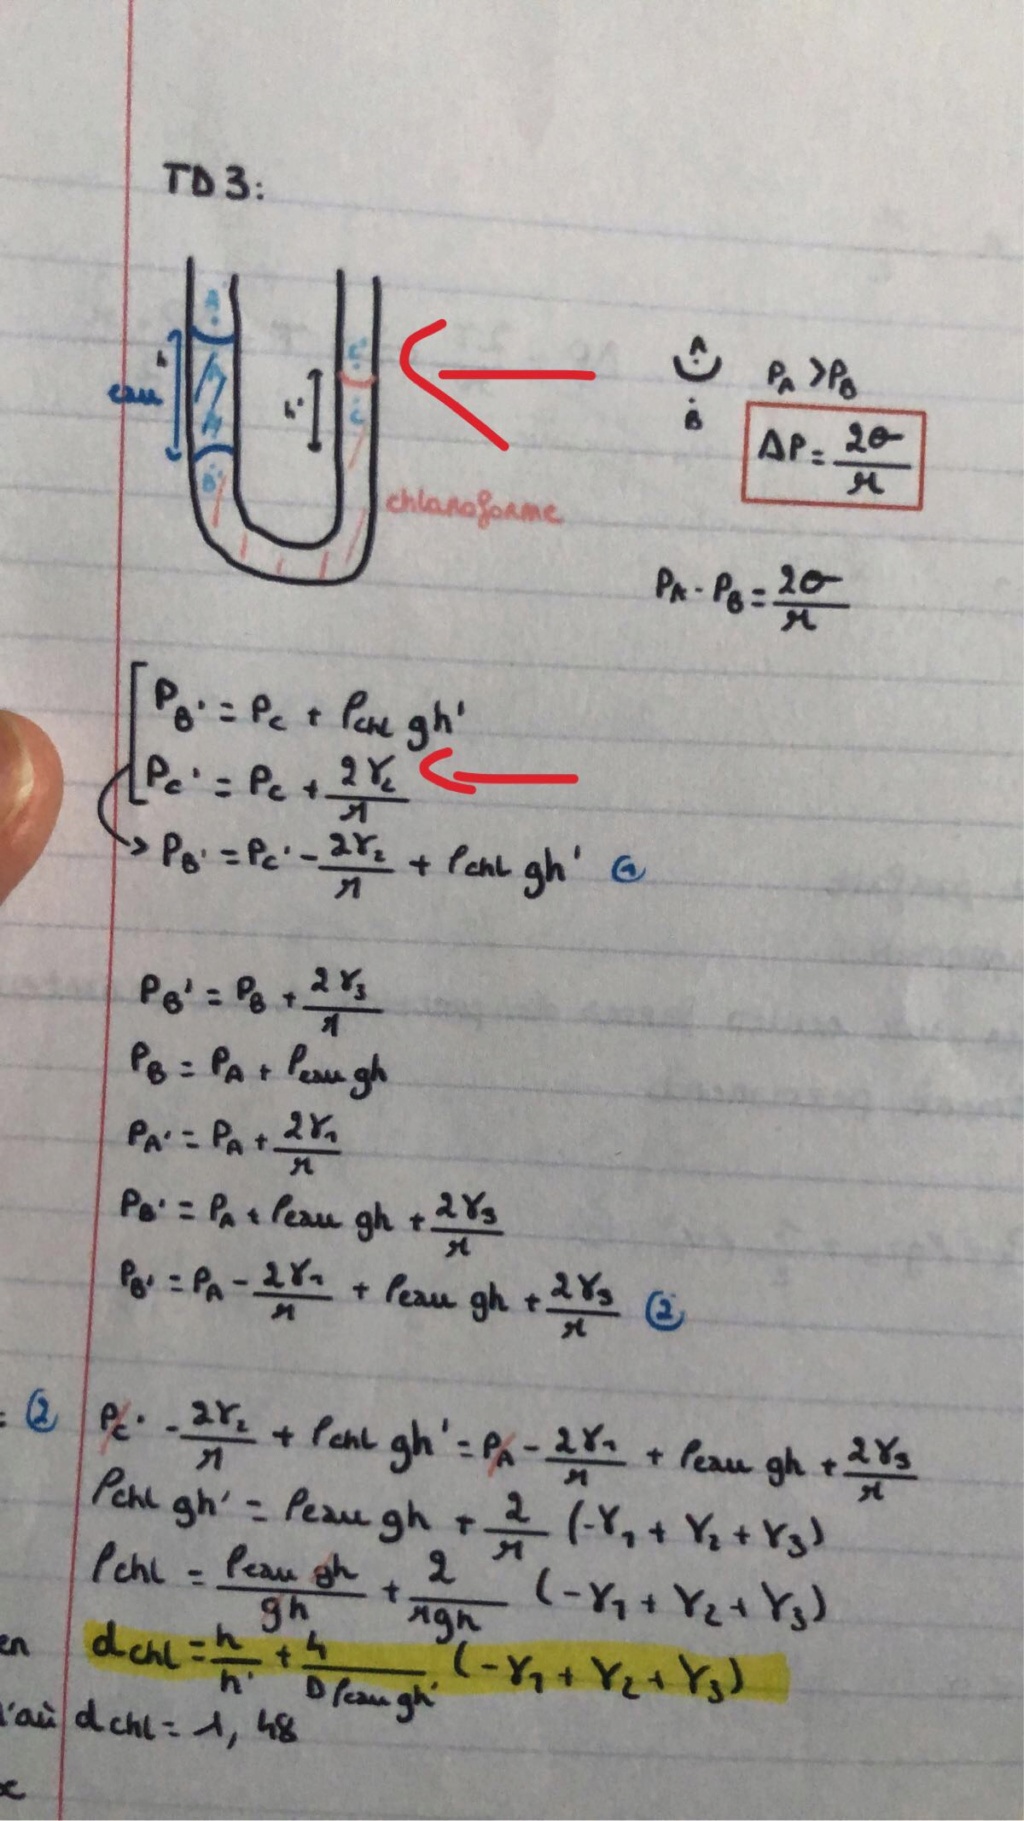 TD3:
A'
h
eau
A
B
B'
h'
C'
C
chloroforme
A
B
P_A > P_B
ΔP = 2σ/r
P_A - P_B = 2σ/r
P_B' = P_C + ρ_CHL gh'
P_C' = P_C + 2γ₂/r
-> P_B' = P_C' - 2γ₂/r + ρ_CHL gh' ①
P_B' = P_B + 2γ₃/r
P_B = P_A + ρ_eau gh
P_A' = P_A + 2γ₁/r
P_B' = P_A + ρ_eau gh + 2γ₃/r
P_B' = P_A - 2γ₁/r + ρ_eau gh + 2γ₃/r ②
= ② P_C' - 2γ₂/r + ρ_CHL gh' = P_A - 2γ₁/r + ρ_eau gh + 2γ₃/r
ρ_CHL gh' = ρ_eau gh + 2/r (-γ₁ + γ₂ + γ₃)
ρ_CHL = ρ_eau gh/gh + 2/rgh (-γ₁ + γ₂ + γ₃)
en d_CHL = h/h' + 4/(D ρ_eau gh') (-γ₁ + γ₂ + γ₃)
d'où d_CHL = 1,48